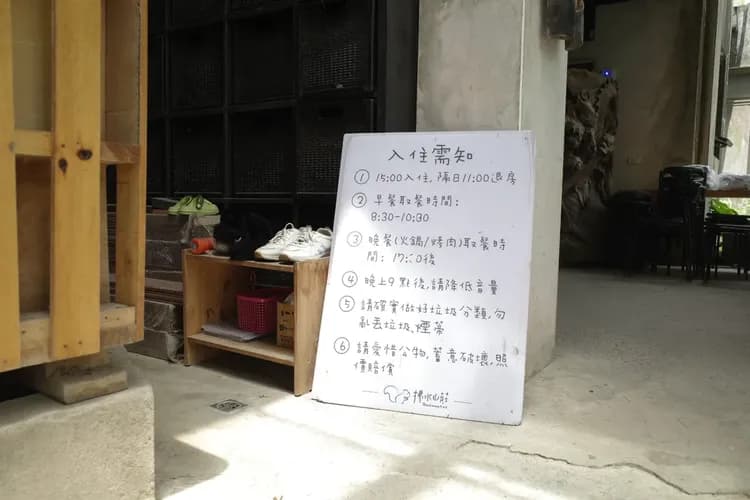 入住需知
① 15:00入住,隔日11:00退房
② 早餐取餐時間:
8:30-10:30
③ 晚餐(火鍋/烤肉)取餐時
間: 17:00後
④ 晚上9點後,請降低音量
⑤ 請確實做好垃圾分類,勿
亂丟垃圾、煙蒂
⑥ 請愛惜公物,蓄意破壞,照
價賠償